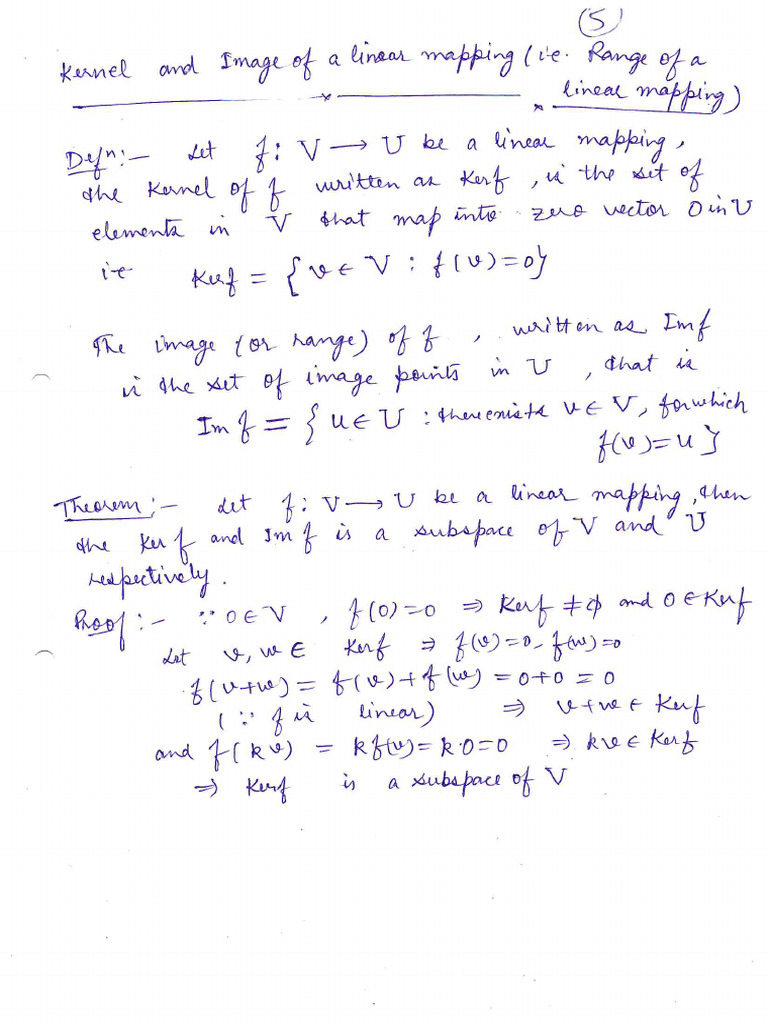 (5)
Kernel and Image of a linear mapping (i.e. Range of a
linear mapping)
Defⁿ:- Let f: V → U be a linear mapping,
the Kernel of f written as Kerf, is the set of
elements in V that map into zero vector 0 in U
i.e Kerf = {v ∈ V : f(v)=0}
The image (or range) of f, written as Imf
is the set of image points in U, that is
Im f = {u ∈ U : there exists v ∈ V, for which
f(v)=u}
Theorem:- Let f: V → U be a linear mapping, then
the Ker f and Im f is a subspace of V and U
respectively.
Proof:- ∵ 0 ∈ V, f(0)=0 ⇒ Kerf ≠ ϕ and 0 ∈ Kerf
Let v, w ∈ Kerf ⇒ f(v)=0, f(w)=0
f(v+w) = f(v)+f(w) = 0+0 = 0
(∵ f is linear) ⇒ v+w ∈ Kerf
and f(kv) = kf(v) = k.0=0 ⇒ kv ∈ Kerf
⇒ Kerf is a subspace of V